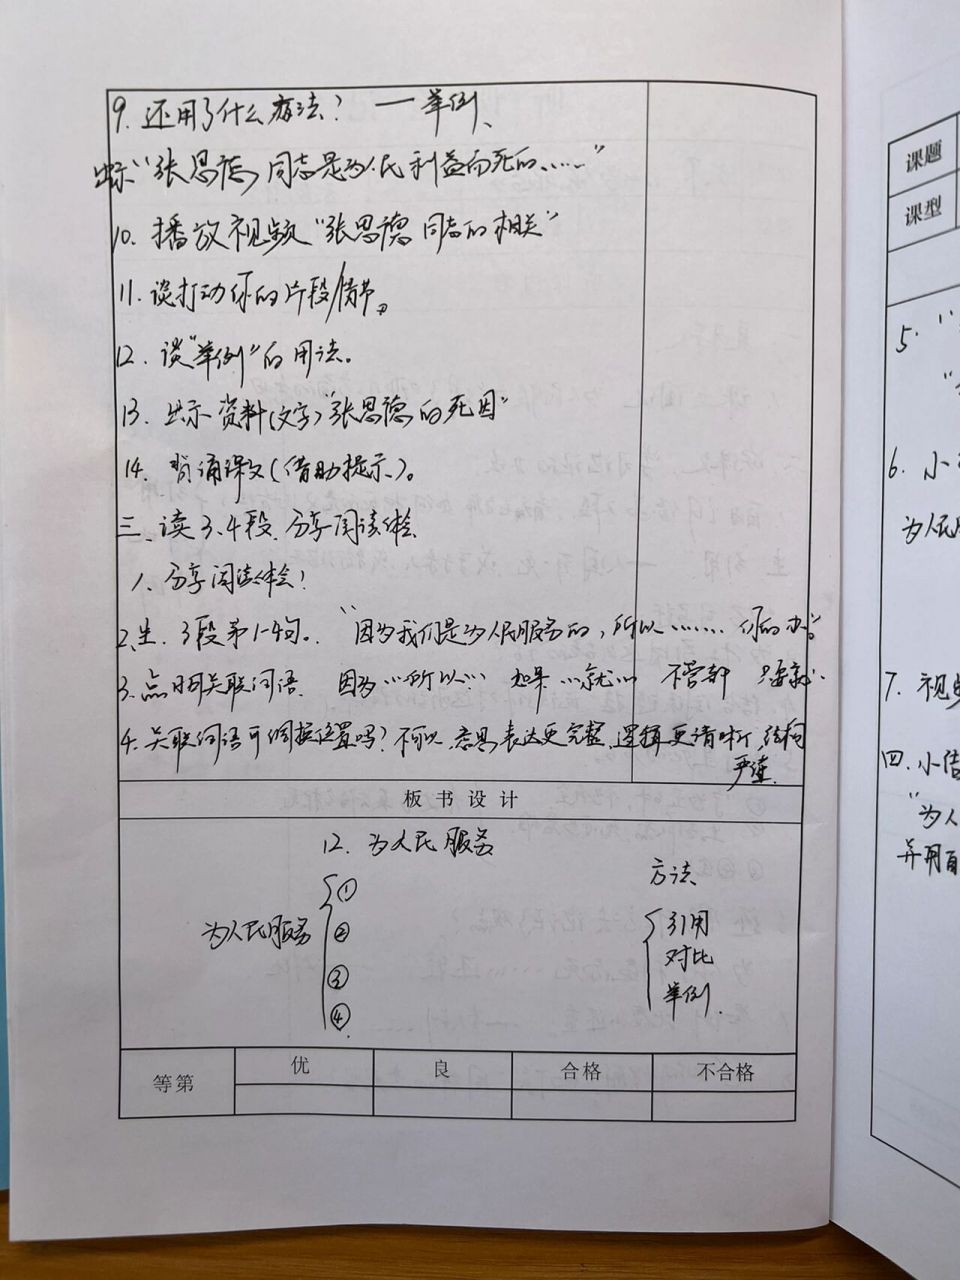 9. 还用了什么方法? — 举例、
出示“张思德同志是为人民利益而死的……”
10. 播放视频“张思德同志的相关”
11. 谈打动你的片段/情节。
12. 谈“举例”的用法。
13. 出示资料(文字)“张思德的死因”
14. 背诵课文(借助提示)。
三、读3.4段,分享阅读体会
1、分享阅读体会!
2、生. 3段第1-4句。“因为我们是为人民服务的,所以…… 你的办”。
3. 点明关联词语. 因为…所以… 如果…就… 不管都 只要就…
4. 关联词语可调换位置吗? 不可以,意思表达更完整,逻辑更清晰,结构
严谨.
板书设计
12. 为人民服务
为人民服务
①
②
③
④
方法
引用
对比
举例.
等第
优
良
合格
不合格
课题
课型
5. “
6. 小
为人民
7. 视
四. 小结
“为人
并用自